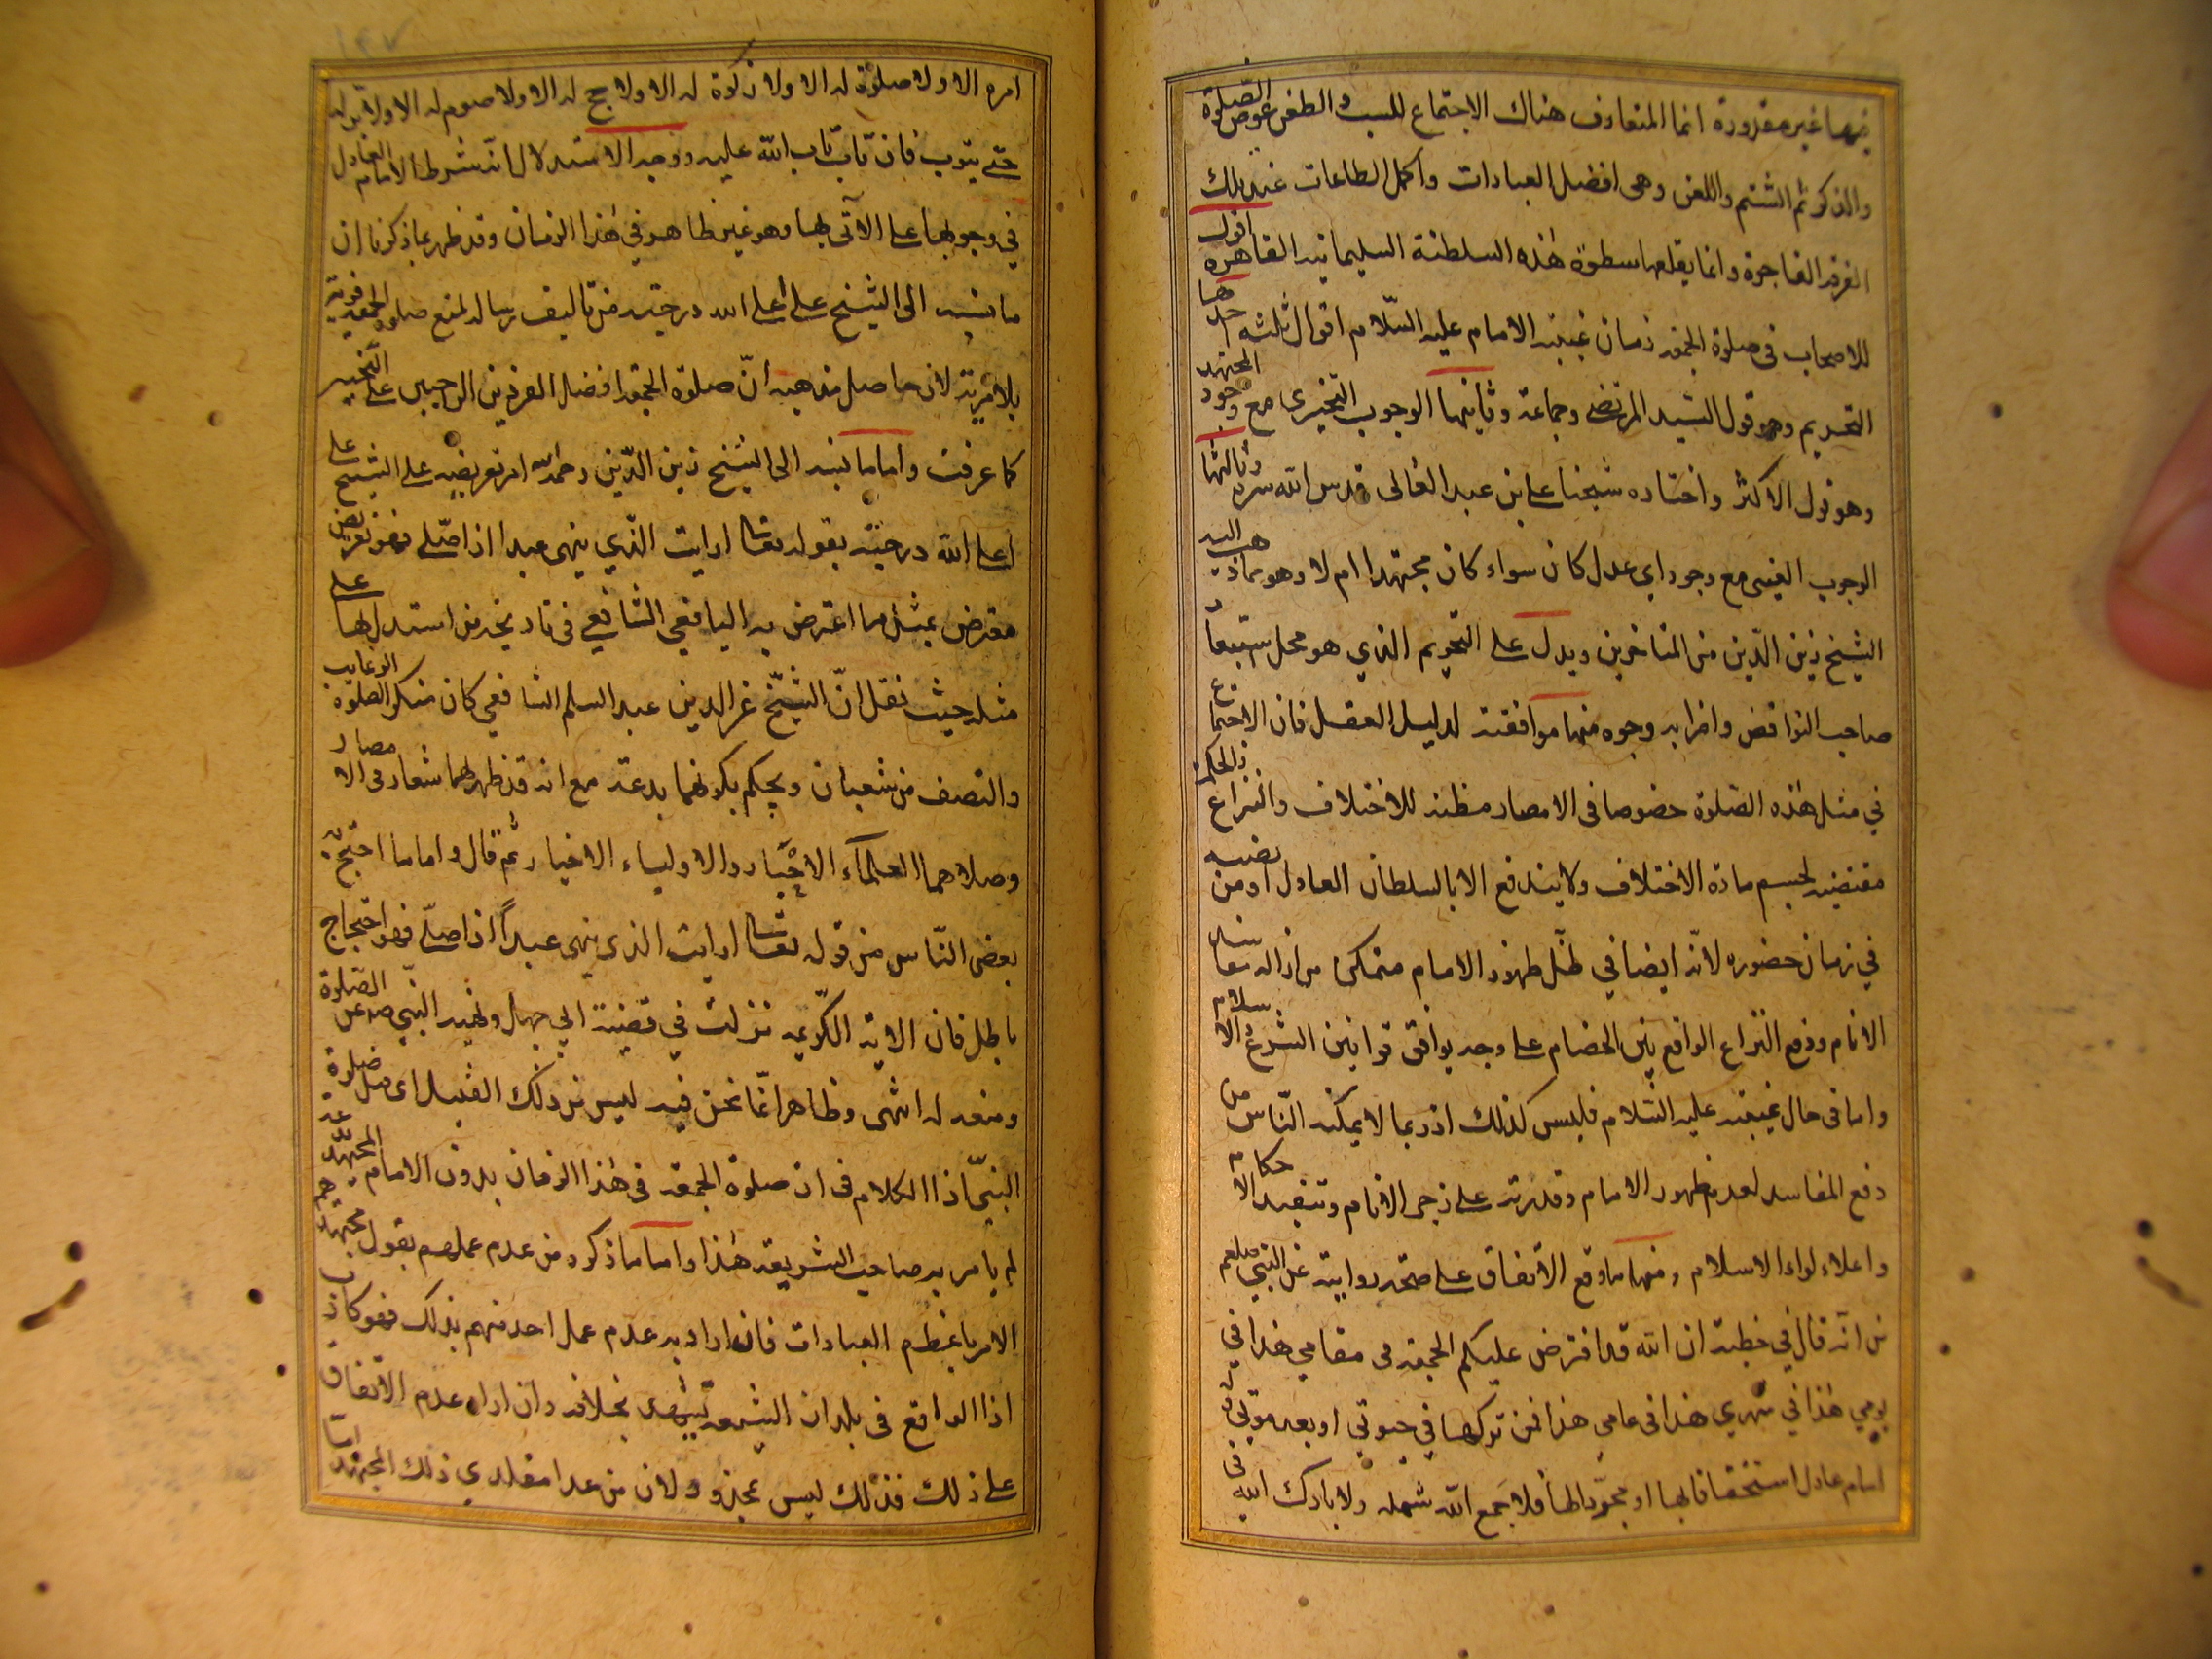 فيها غير مقدورة انما المتعارف هناك الاجتماع للسب و الطعن عوض الصلوة
والذكر ثم الشتم واللعن وهى افضل العبادات واكمل الطاعات عند تلك
الفرقة الفاجرة وانما يقلعها سطوة هٰذه السلطنة السليمانيه القاهرة اقول
للاصحاب فى صلوة الجمعه زمان غيبة الامام عليه السّلام اقوال ثلثه احدها
التحريم وهو قول السّيد المرتضى وجماعة وثانيها الوجوب التّخييرى مع وجود المجتهد
وهو قول الاكثر واختاره شيخنا على بن عبد العالى قدس الله سره وثالثها
الوجوب العينى مع وجود اى عدل كان سواء كان مجتهدا ام لا وهو مما ذهب اليه
الشيخ زين الدّين من المتاخرين ويدل على التحريم الذي هو محل استبعاد
صاحب النواقض واضرابه وجوه منها موافقته لدليل العقل فان الاجتماع
في مثل هٰذه الصّلوة خصوصا فى الامصار مظنه للاختلاف والنزاع والحكمة
مقتضية لحسم مادة الاختلاف ولا يندفع الا بالسلطان العادل او من نصبه
في زمان حضوره لانّه ايضا في ظل ظهور الامام متمكن من ازالة مفاسد
الانام ودفع النّزاع الواقع بين الخصام على وجه يوافق قوانين الشرع والاسلام
واما فى حال غيبته عليه السّلام فليس كذلك اذ ربما لا يمكنه النّاس من
دفع المفاسد لعدم ظهور الامام وقدرته على زجر الانام وتنفيذ الاحكام
واعلاء لواء الاسلام ومنها ما وقع الاتفاق على صحته رواية عن النّبي صلعم
من انّه قال في خطبته ان الله قد افترض عليكم الجمعه فى مقامي هذا في
يومي هٰذا في شهري هذا فى عامي هذا فمن تركها في حيوتي او بعد موتي وله
امام عادل استخفافا بها او جحودا لها فلا جمع الله شمله ولا بارك الله فى
امره الا ولا صلوة له الا ولا زكوة له الا ولا حج له الا ولا صوم له الا ولا بر له
حتى يتوب فان تاب تاب الله عليه ووجه الاستدلال انّه شرط الامام العادل
في وجوبها على الآتى بها وهو غير ظاهر في هٰذا الزمان وقد ظهر بما ذكرنا ان
ما نسبه الى الشيخ على اعلى الله درجته من تاليف رسالة لمنع صلوة الجمعه فرية
بلا مرية لان حاصل مذهبه انّ صلوة الجمعه افضل الفردين الواجبين على التّخيير
كما عرفت واما ما نسبه الى الشيخ زين الدّين رحمه الله من تعريضه على الشيخ على
اعلى الله درجته بقوله تعالى ارايت الّذي ينهى عبدا اذا صلّى فهو تعريض
معترض بمثل ما اعترض به اليافعي الشافعي في تاريخه من استدل بها على
مثله حيث نقل انّ الشيخ عز الدين عبد السلم الشافعي كان منكر الصلوة الرغايب
والنصف من شعبان ويحكم بكونهما بدعة مع انه قد ظهر لهما شعار فى الامصار
وصلاهما العلمآء الاحبار والاولياء الاخيار ثم قال واما ما احتج به
بعض النّاس من قوله تعالى ارايت الذى ينهى عبداً اذا صلّى فهو احتجاج
باطل فان الاية الكريمه نزلت في قضية ابي جهل ونهيه النّبي ص عن الصّلوة
ومنعه له انتهى وظاهر انّما نحن فيه ليس من ذلك القبيل اى مثل صلوة
النبيّ اذ الكلام فى ان صلوة الجمعه فى هٰذا الزمان بدون الامام المجتهد
لم يامر به صاحب الشريعه هٰذا واما ما ذكره من عدم عملهم بقول مجتهدهم
الامر باعظم العبادات فان اراد به عدم عمل احد منهم بذلك فهو كاذب
اذ الواقع فى بلدان الشيعه يشهد بخلافه وان اراد عدم الاتفاق
على ذلك فذلك ليس بمحذور لان من عدا مقلدي ذلك المجتهد انما